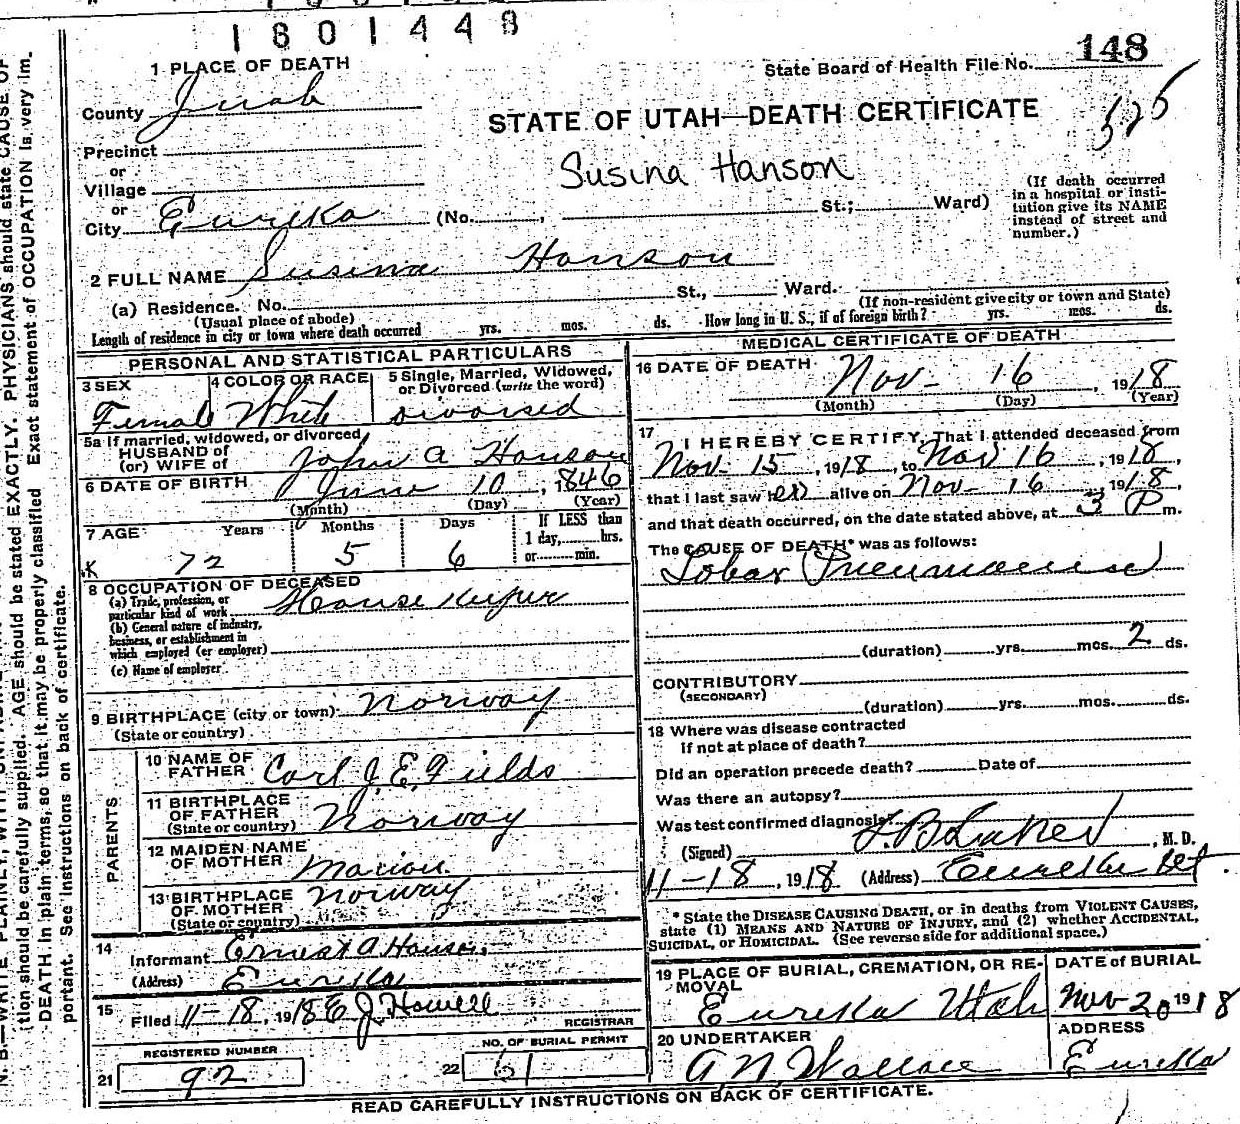 1801448
148
1 PLACE OF DEATH
State Board of Health File No.
County Juab
STATE OF UTAH—DEATH CERTIFICATE
Precinct
or
Village
or
City Eureka
Susina Hanson
(No. , St.; Ward)
(If death occurred
in a hospital or insti-
tution give its NAME
instead of street and
number.)
2 FULL NAME Susina Hanson
(a) Residence. No. St., Ward.
(Usual place of abode)
(If non-resident give city or town and State)
Length of residence in city or town where death occurred yrs. mos. ds. How long in U. S., if of foreign birth? yrs. mos. ds.
PERSONAL AND STATISTICAL PARTICULARS
3 SEX
Female
4 COLOR OR RACE
White
5 Single, Married, Widowed,
or Divorced (write the word)
Divorsed
5a If married, widowed, or divorced
HUSBAND of
(or) WIFE of John A Hanson
6 DATE OF BIRTH June 10, 1846
(Month) (Day) (Year)
7 AGE Years Months Days If LESS than
1 day, hrs.
or min.
72 5 6
8 OCCUPATION OF DECEASED
(a) Trade, profession, or
particular kind of work House Keeper
(b) General nature of industry,
business, or establishment in
which employed (or employer)
(c) Name of employer
9 BIRTHPLACE (city or town) Norway
(State or country)
PARENTS
10 NAME OF
FATHER Carl J. E. Fields
11 BIRTHPLACE
OF FATHER Norway
(State or country)
12 MAIDEN NAME
OF MOTHER Marion
13 BIRTHPLACE
OF MOTHER Norway
(State or country)
14
Informant Ernest A Hanson
(Address) Eureka
15
Filed 11-18, 1918 E J Howell
REGISTRAR
REGISTERED NUMBER
21 92
NO. OF BURIAL PERMIT
22 61
MEDICAL CERTIFICATE OF DEATH
16 DATE OF DEATH Nov- 16, 1918
(Month) (Day) (Year)
17
I HEREBY CERTIFY, That I attended deceased from
Nov- 15, 1918, to Nov 16, 1918,
that I last saw her alive on Nov- 16, 1918,
and that death occurred, on the date stated above, at 3 P m.
The CAUSE OF DEATH* was as follows:
Lobar Pneumonia
(duration) yrs. mos. 2 ds.
CONTRIBUTORY
(SECONDARY)
(duration) yrs. mos. ds.
18 Where was disease contracted
if not at place of death?
Did an operation precede death? Date of
Was there an autopsy?
Was test confirmed diagnosis?
(Signed) , M. D.
11-18, 1918 (Address) Eureka Ut.
* State the DISEASE CAUSING DEATH, or in deaths from VIOLENT CAUSES,
state (1) MEANS AND NATURE OF INJURY, and (2) whether ACCIDENTAL,
SUICIDAL, or HOMICIDAL. (See reverse side for additional space.)
19 PLACE OF BURIAL, CREMATION, OR RE-
MOVAL
Eureka Utah
DATE of BURIAL
Nov 20 1918
20 UNDERTAKER
A N. Wallace
ADDRESS
Eureka
READ CAREFULLY INSTRUCTIONS ON BACK OF CERTIFICATE.
tion should be carefully supplied. AGE should be stated EXACTLY. PHYSICIANS should state CAUSE OF
DEATH in plain terms, so that it may be properly classified. Exact statement of OCCUPATION is very im-
portant. See instructions on back of certificate.